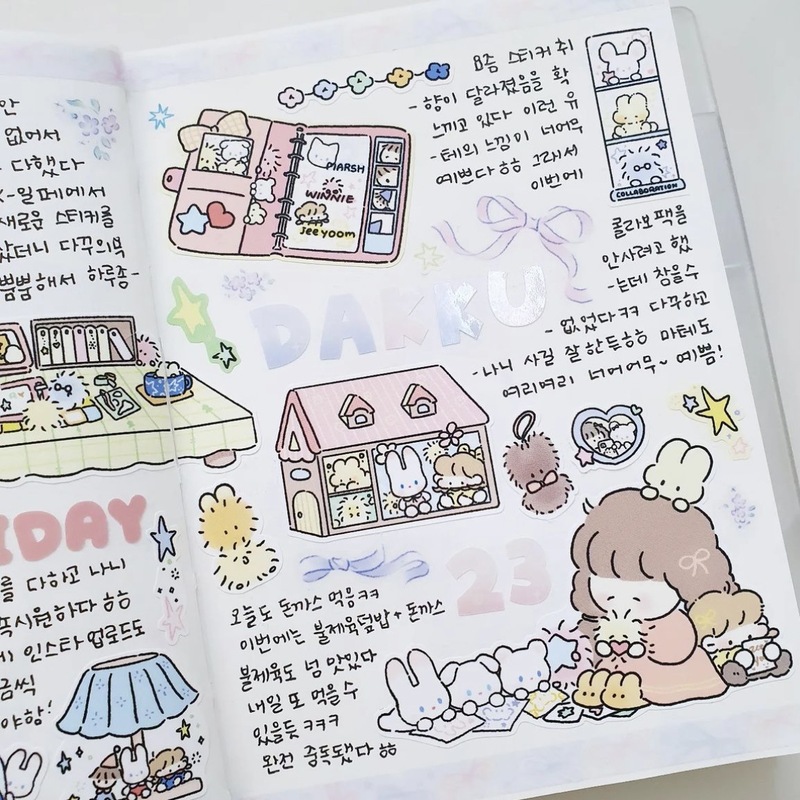 안
없어서
다했다
K-일페에서
새로운 스티커를
샀더니 다꾸의부
뿜뿜해서 하루종-
IDAY
를 다하고 나니
속시원하다 ㅎㅎ
인스타 업로드도
금씩
야항!
요즘 스티커 취
-향이 달라졌음을 확
느끼고 있다 이런 유
-테의 느낌이 너어무
예쁘다 ㅎㅎ 그래서
이번에
COLLABORATION
콜라보팩을
안사려고 했
-는데 참을수
-없었다ㅋㅋ 다꾸하고
-나니 사길 잘한듯ㅎㅎ 마테도
여리여리 너어어무~ 예쁨!
MARSH
WINNIE
Jeeyoom
DAKKU
23
오늘도 돈까스 먹음ㅋㅋ
이번에는 불제육덮밥+돈까스
불제육도 넘 맛있다
내일 또 먹을수
있을듯 ㅋㅋㅋ
완전 중독됐다 ㅎㅎ